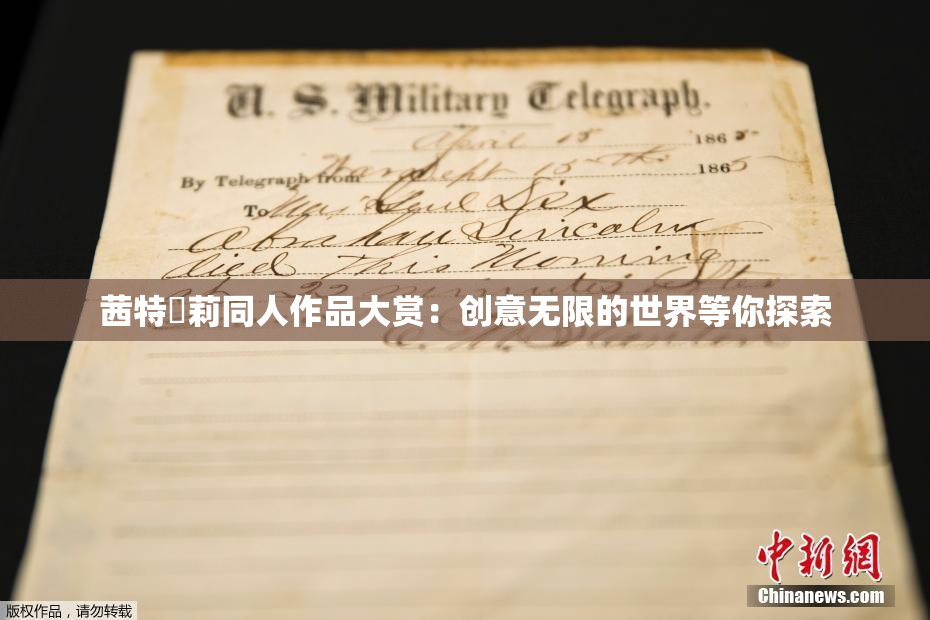 U. S. Military Telegraph.
April 15 1865
By Telegraph from War Dept 15th 1865
To Maj Genl Dix
Abraham Lincoln
died This Morning
at 22 minutes after
茜特莉同人作品大赏：创意无限的世界等你探索
E. M. Stanton
中新網
Chinanews.com
版权作品，请勿转载